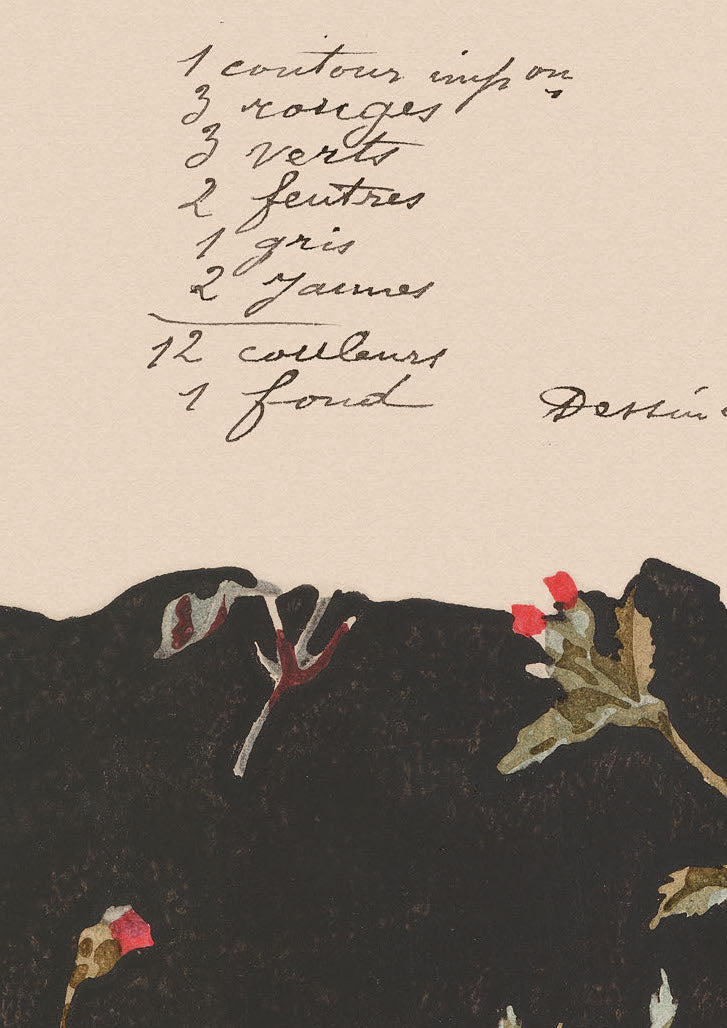 1 contour imp on
3 rouges
3 verts
2 feutres
1 gris
2 Jaunes
12 couleurs
1 fond Dessin